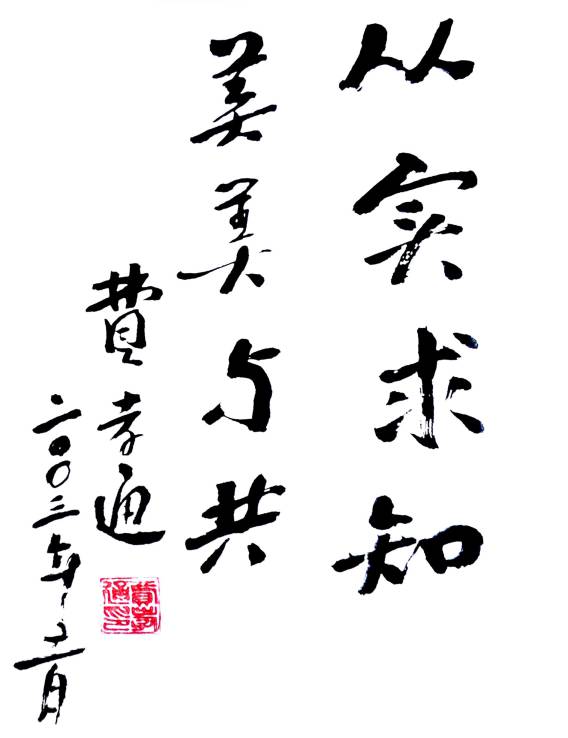 从实求知
美美与共
費孝通
二〇〇三年十二月
費孝通印